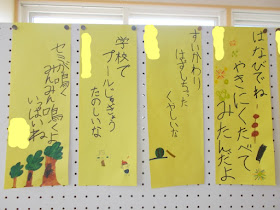 はなびでね
やきにくたべて
みたんだよ
すいかわり
はずしちゃった
くやしいな
学校で
プールじゅぎょう
たのしいな
セミが鳴く
みんみん鳴くよ
いっぱいね